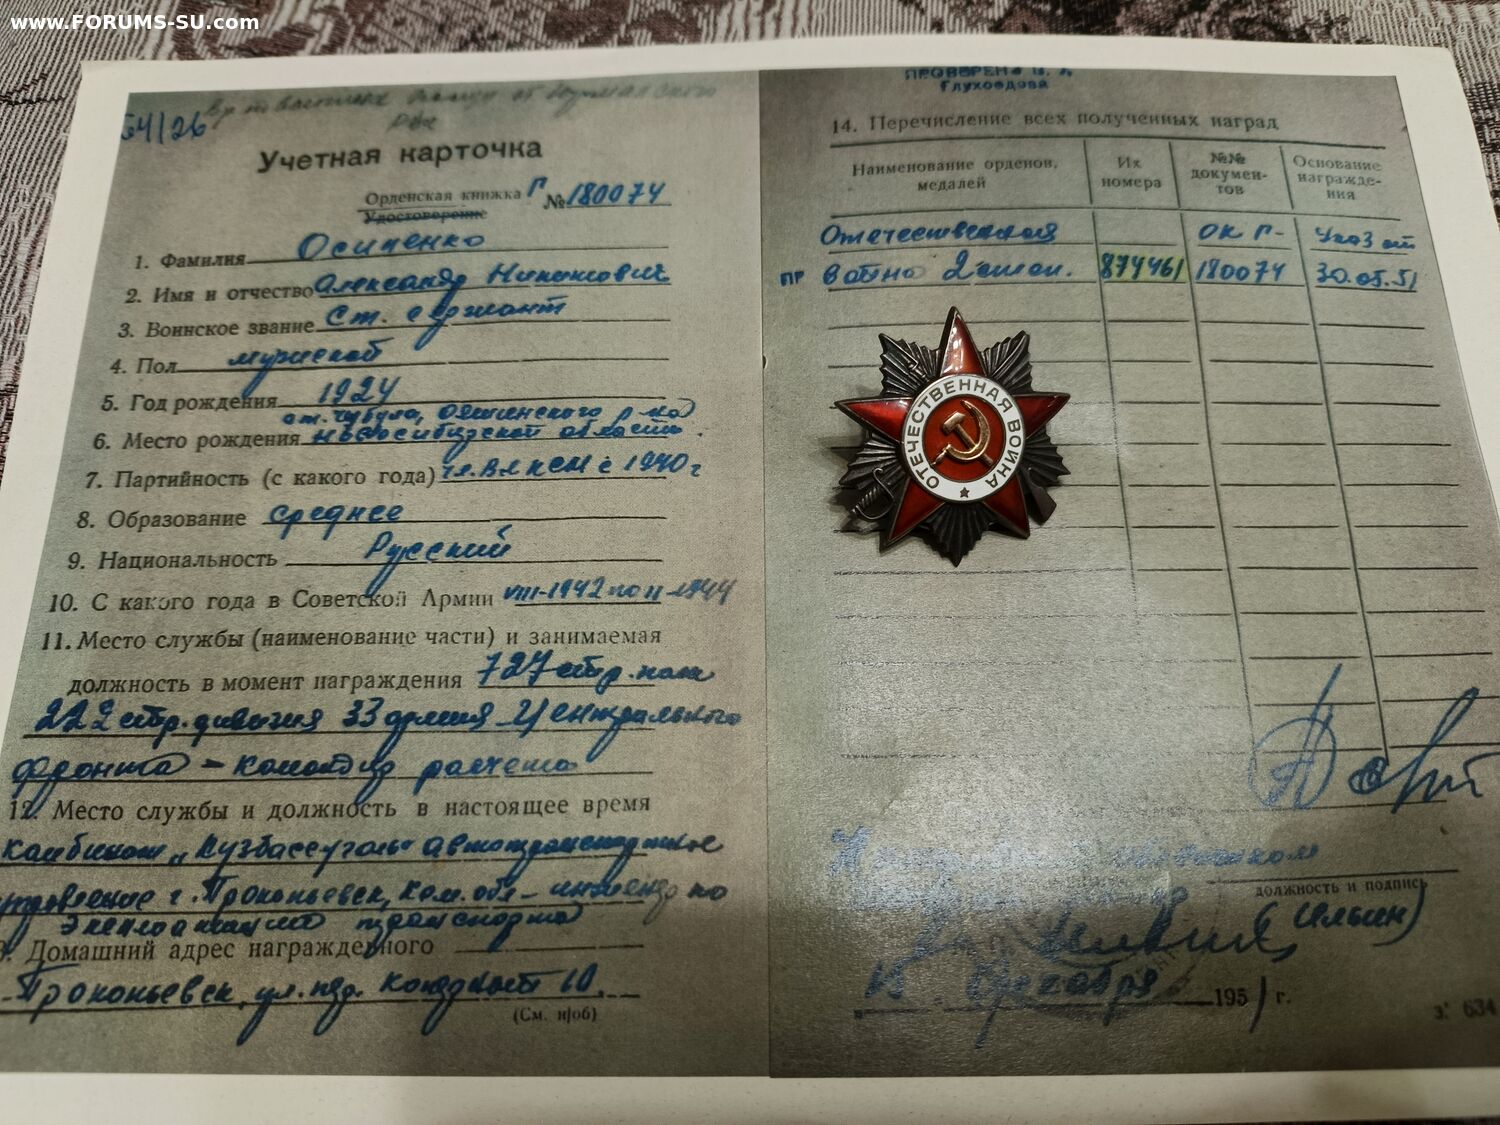 www.FORUMS-SU.com
54/26
Учетная карточка
Орденская книжка Г № 180074
Удостоверение
1. Фамилия Осипенко
2. Имя и отчество Александр
3. Воинское звание Ст. сержант
4. Пол мужской
5. Год рождения 1924
ст. Чебула,
6. Место рождения Новосибирской области.
7. Партийность (с какого года) чл. ВЛКСМ с 1940 г
8. Образование среднее
9. Национальность Русский
10. С какого года в Советской Армии VIII-1942 по II-1944
11. Место службы (наименование части) и занимаемая
должность в момент награждения 727 стр. полк
222 стр. дивизия 33 армия Центрального
фронта – командир расчета
12. Место службы и должность в настоящее время
комбинат „Кузбассуголь" автотранспортное
управление г. Прокопьевск, инженер по
эксплоатации транспорта
Домашний адрес награжденного
Прокопьевск, ул. 10.
(См. н/об)
ПРОВЕРЕНО
Глуховдова
14. Перечисление всех полученных наград
Наименование орденов, медалей
Их номера
№№ документов
Основание награждения
Отечественная ОК Г- Указ от
ПР война 2 степ. 874461 180074 30.05.51
ОТЕЧЕСТВЕННАЯ ВОЙНА
должность и подпись
(Ильин)
15 декабря 1951 г.
З. 634